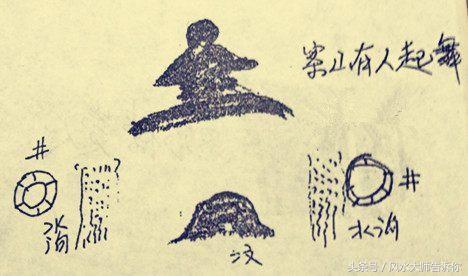 案山有人起舞
井
井
水沟
水沟
头条号 / 风水大师告诉你